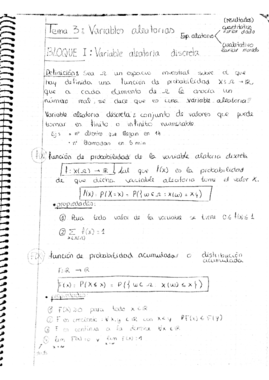 (resultados)
Tema 3: Variables aleatorias
Exp. aleatorio
cuantitativo
cualitativo
BLOQUE I: Variable aleatoria discreta
Definición: Sea Ω un espacio muestral sobre el que
hay definida una función de probabilidad X: Ω → R,
que a cada elemento de Ω le asocia un
número real, se dice que es una variable aleatoria.
Variable aleatoria discreta: conjunto de valores que puede
tomar es finito o infinito numerable
Ej: - nº clientes que llegan en 1h
- nº llamadas en 5 min
función de probabilidad de la variable aleatoria discreta
f: X(Ω) → R tal que f(x) es la probabilidad
de que dicha variable aleatoria tome el valor x.
f(x) = P(X=x) = P({ω∈Ω : X(ω) = x})
• propiedades:
① Para todo valor de la variable se tiene 0 ≤ f(x) ≤ 1
② Σ f(x) = 1
función de probabilidad acumulada o distribución
acumulada
F: R → R
F(x) = P(X ≤ x) = P({ω∈Ω : X(ω) ≤ x})
• propiedades:
① F(x) ≥ 0 para todo x ∈ R
② F es creciente
③ F es continua a la derecha ∀x ∈ R